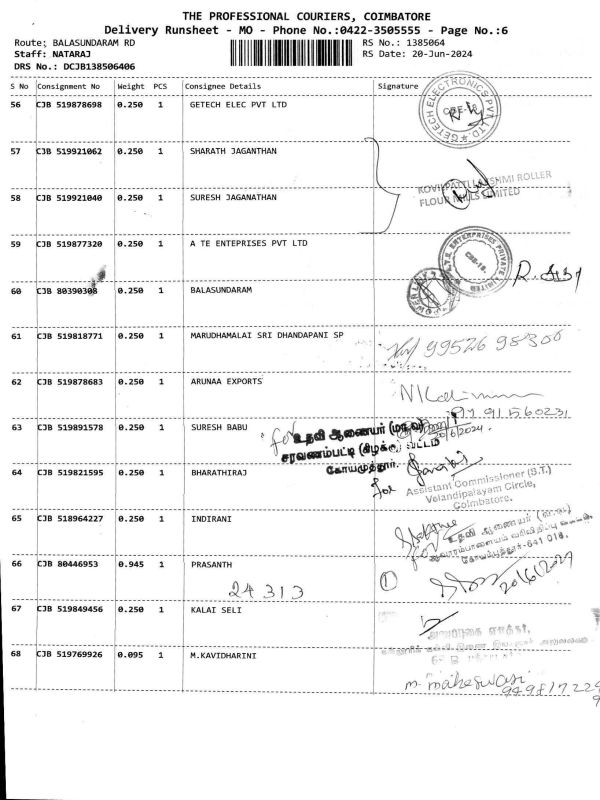 THE PROFESSIONAL COURIERS, COIMBATORE
Delivery Runsheet - MO - Phone No.:0422-3505555 - Page No.:6
Route: BALASUNDARAM RD RS No.: 1385064
Staff: NATARAJ RS Date: 20-Jun-2024
DRS No.: DCJB138506406
S No Consignment No Weight PCS Consignee Details Signature
56 CJB 519878698 0.250 1 GETECH ELEC PVT LTD
GETECH ELECTRONICS PVT. LTD
57 CJB 519921062 0.250 1 SHARATH JAGANTHAN
KOVILPATTI LAKSHMI ROLLER
FLOUR MILLS LIMITED
58 CJB 519921040 0.250 1 SURESH JAGANATHAN
59 CJB 519877320 0.250 1 A TE ENTEPRISES PVT LTD
A.T.E. ENTERPRISES PRIVATE LIMITED
CBE-18.
60 CJB 80390308 0.250 1 BALASUNDARAM
61 CJB 519818771 0.250 1 MARUDHAMALAI SRI DHANDAPANI SP
99526 98300
62 CJB 519878683 0.250 1 ARUNAA EXPORTS
63 CJB 519891578 0.250 1 SURESH BABU
for உதவி ஆணையர் (மாவ)
20/6/2024.
சரவணம்பட்டி (கிழக்கு) வட்டம்
கோயமுத்தூர்.
64 CJB 519821595 0.250 1 BHARATHIRAJ
for Assistant Commissioner (S.T.)
Velandipalayam Circle,
Coimbatore.
65 CJB 518964227 0.250 1 INDIRANI
for உதவி ஆணையர்
கோயம்புத்தூர்-641 018.
66 CJB 80446953 0.945 1 PRASANTH
24313 1 20/6/2024
67 CJB 519849456 0.250 1 KALAI SELI
68 CJB 519769926 0.095 1 M.KAVIDHARINI
m. maheswari